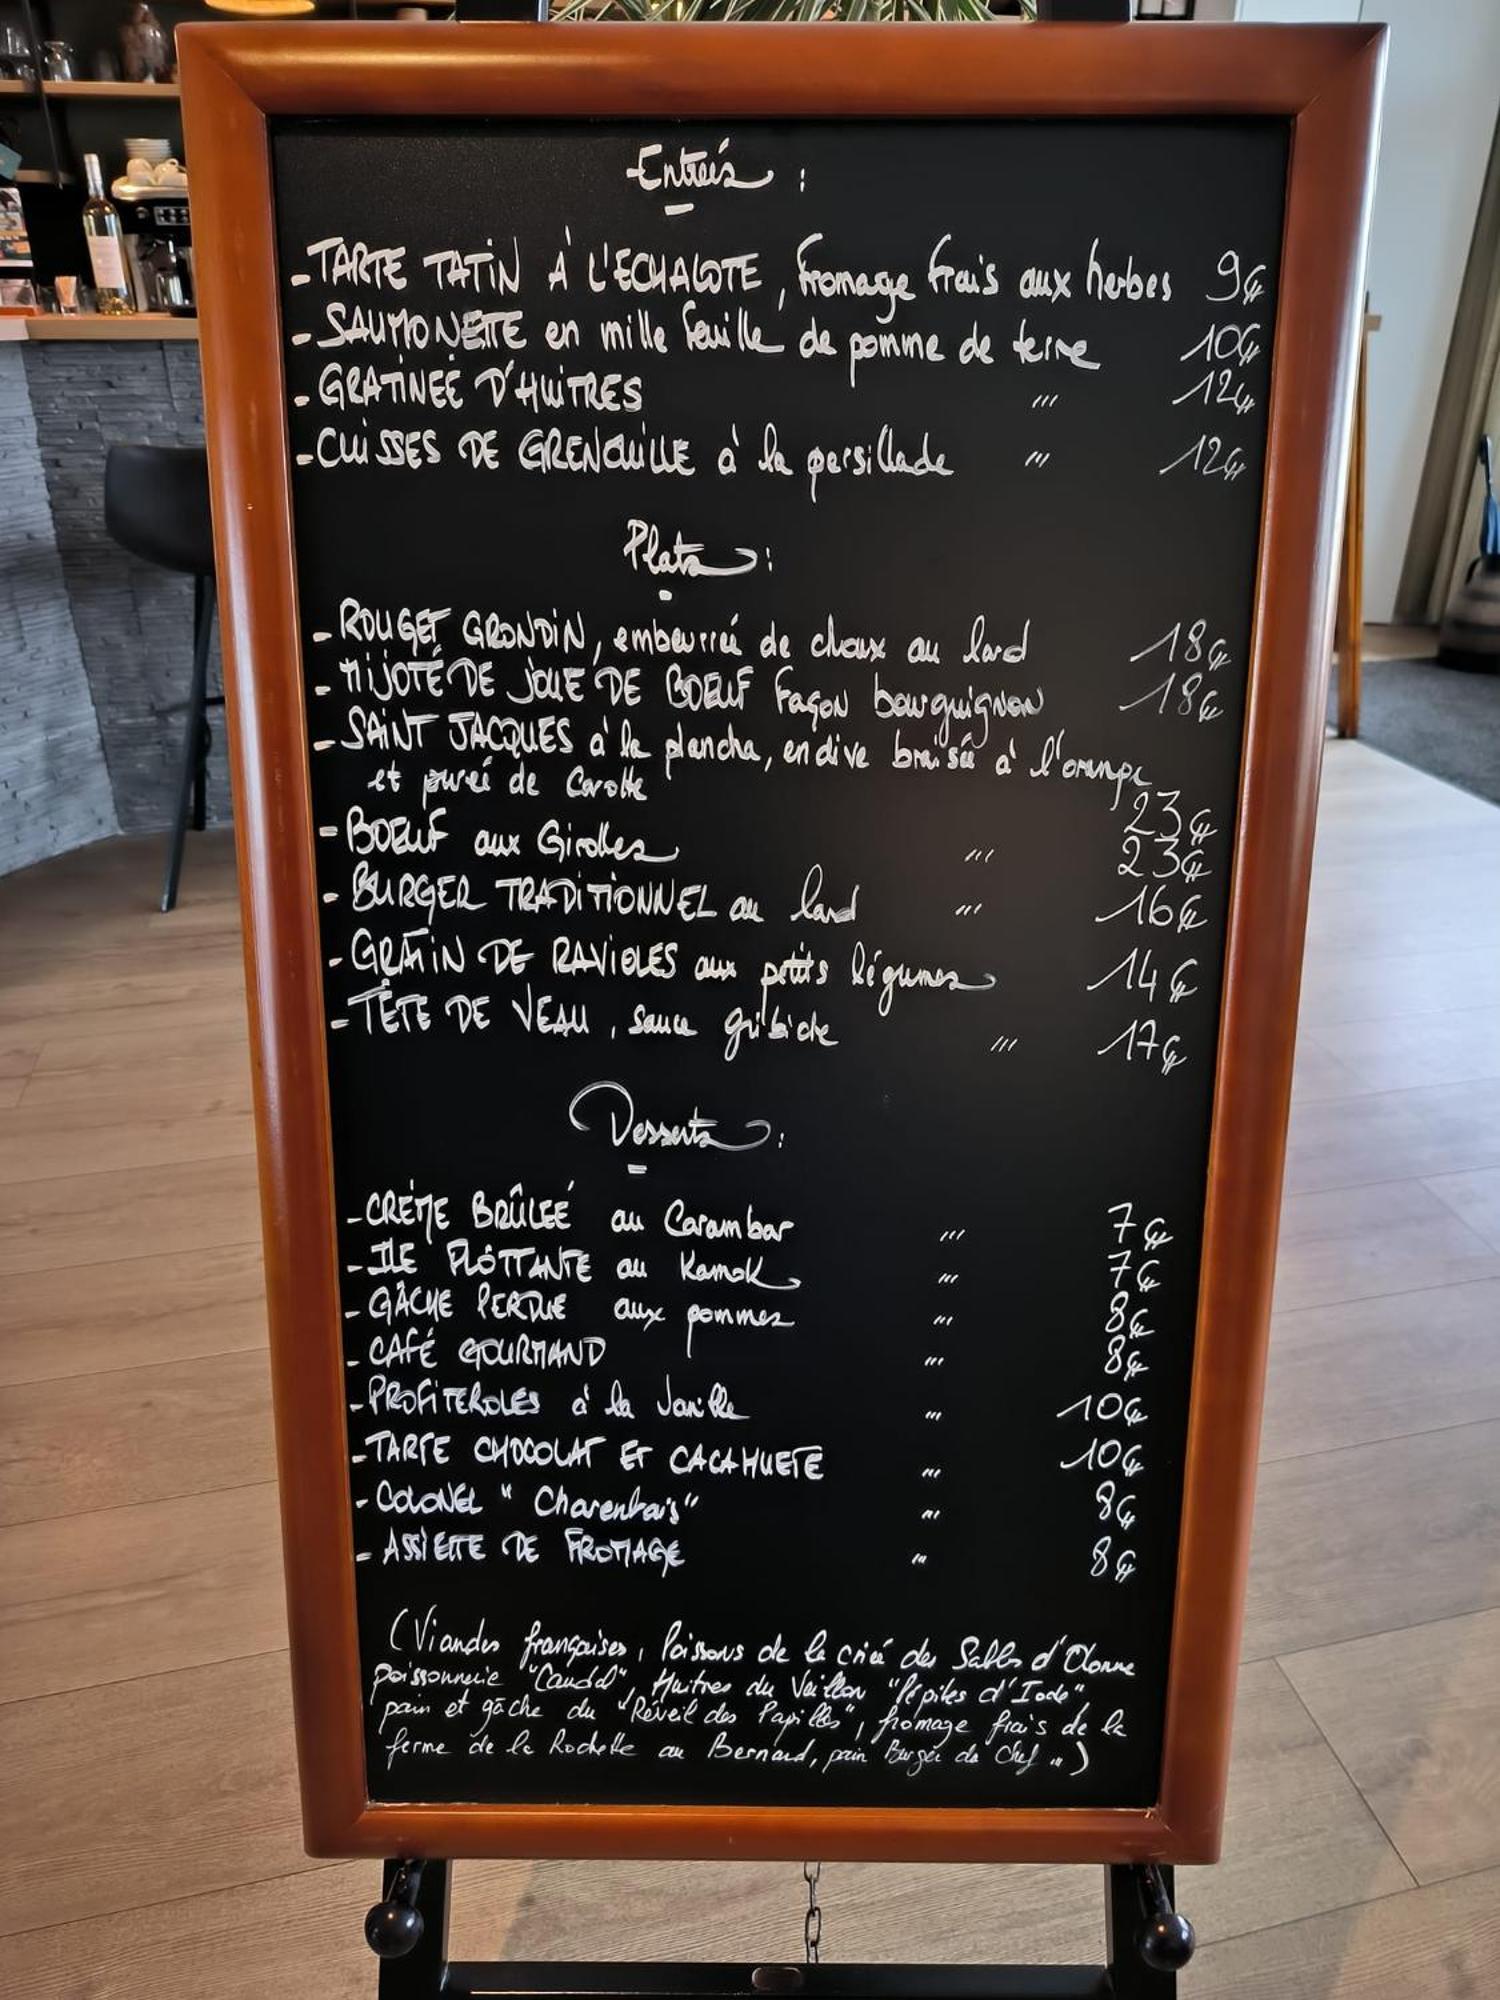 Entrées :
- TARTE TATIN À L'ECHALOTE, fromage frais aux herbes 9€
- SAUMONETTE en mille feuille de pomme de terre 10€
- GRATINÉE D'HUITRES " 12€
- CUISSES DE GRENOUILLE à la persillade " 12€
Plats :
- ROUGET GRONDIN, embeurrée de choux au lard 18€
- MIJOTÉ DE JOUE DE BOEUF façon bourguignon 18€
- SAINT JACQUES à la plancha, endive braisée à l'orange
et purée de Carotte 23€
- BOEUF aux Girolles " 23€
- BURGER TRADITIONNEL au lard " 16€
- GRATIN DE RAVIOLES aux petits légumes 14€
- TÊTE DE VEAU, sauce gribiche " 17€
Desserts :
- CRÈME BRÛLÉE au Carambar " 7€
- ILE FLOTTANTE au Kamok " 7€
- GÂCHE PERDUE aux pommes " 8€
- CAFÉ GOURMAND " 8€
- PROFITEROLES à la Vanille " 10€
- TARTE CHOCOLAT ET CACAHUETE " 10€
- COLONEL "Charentais" " 8€
- ASSIETTE DE FROMAGE " 8€
(Viandes françaises, Poissons de la criée des Sables d'Olonne
poissonnerie, Huitres du Veillon "Pépites d'Iode"
pain et gâche du "Réveil des Papilles", fromage frais de la
ferme de la Rochette au Bernard, pain Burger du Chef ...)